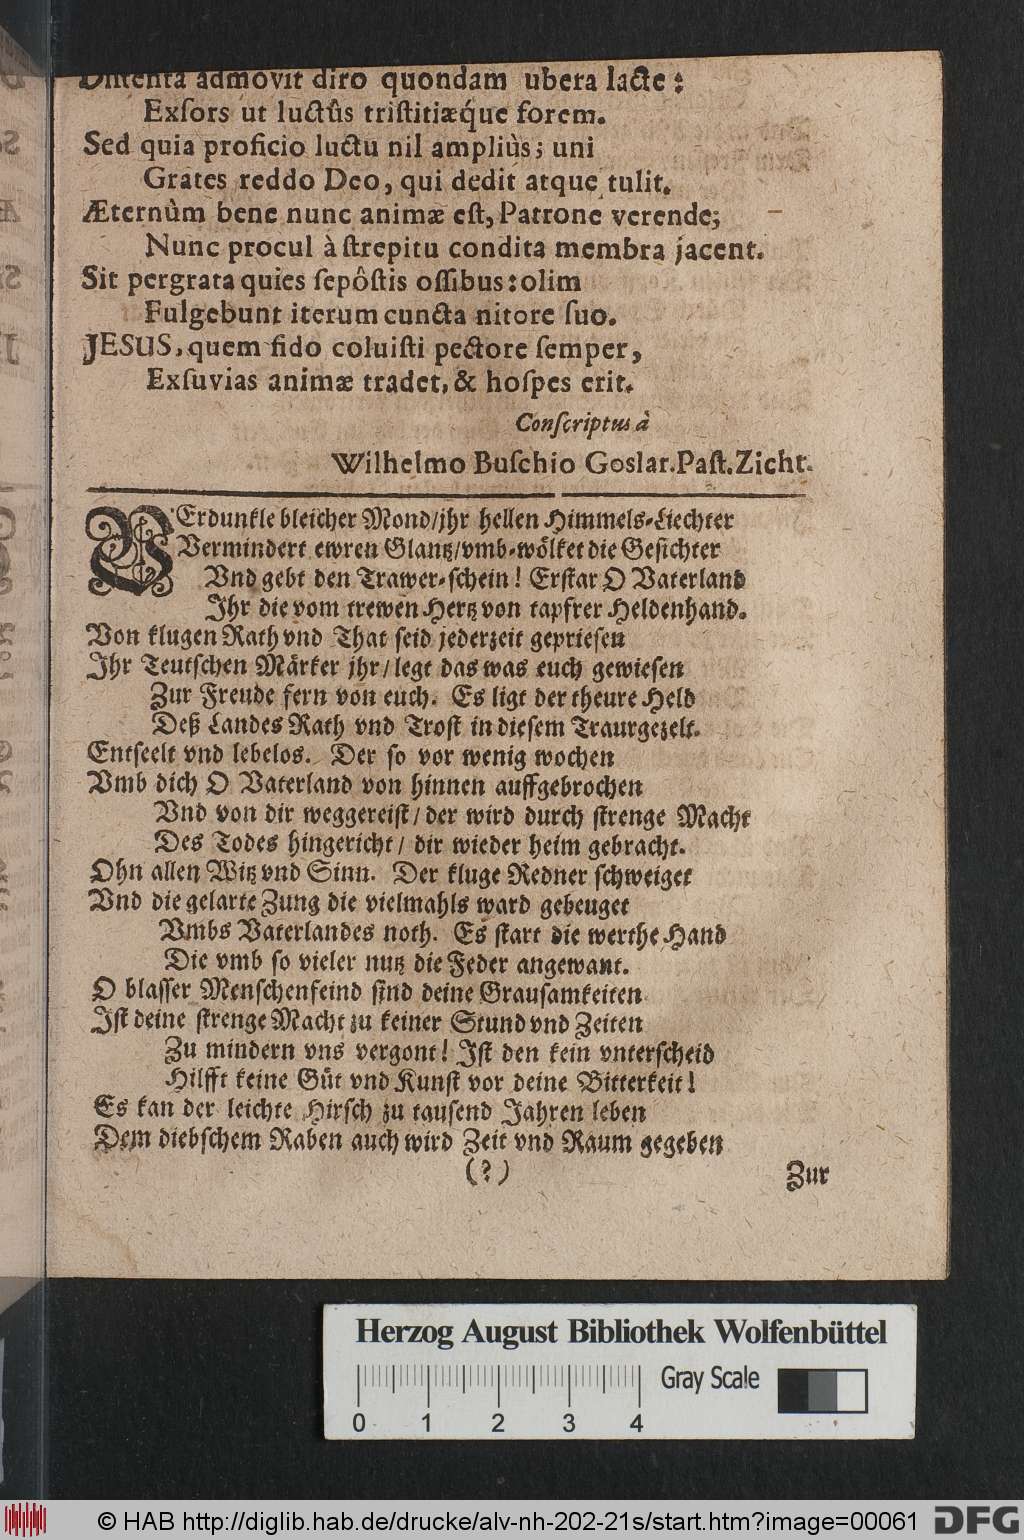 Distenta admovit diro quondam ubera lacte:
Exſors ut luctûs triſtitiæq́ue forem.
Sed quia proficio luctu nil ampliùs; uni
Grates reddo Deo, qui dedit atque tulit.
Æternùm bene nunc animæ eſt, Patrone verende;
Nunc procul à ſtrepitu condita membra jacent.
Sit pergrata quies ſepôſtis oſſibus: olim
Fulgebunt iterum cuncta nitore ſuo.
JESUS, quem fido coluiſti pectore ſemper,
Exſuvias animæ tradet, & hoſpes erit.
Conſcriptus à
Wilhelmo Buſchio Goslar. Paſt. Zicht.
VErdunkle bleicher Mond/jhr hellen Himmels-Liechter
Vermindert ewren Glantz/vmb-wölket die Geſichter
Vnd gebt den Trawer-ſchein! Erſtar O Vaterland
Ihr die vom trewen Hertz von tapfrer Heldenhand.
Von klugen Rath vnd That ſeid jederzeit geprieſen
Ihr Teutſchen Märker jhr/ legt das was euch gewieſen
Zur Freude fern von euch. Es ligt der theure Held
Deß Landes Rath vnd Troſt in dieſem Traurgezelt.
Entſeelt vnd lebelos. Der ſo vor wenig wochen
Vmb dich O Vaterland von hinnen auffgebrochen
Vnd von dir weggereiſt/ der wird durch ſtrenge Macht
Des Todes hingericht/ dir wieder heim gebracht.
Ohn allen Witz vnd Sinn. Der kluge Redner ſchweiget
Vnd die gelarte Zung die vielmahls ward gebeuget
Vmbs Vaterlandes noth. Es ſtart die werthe Hand
Die vmb ſo vieler nutz die Feder angewant.
O blaſſer Menſchenfeind ſind deine Grauſamkeiten
Iſt deine ſtrenge Macht zu keiner Stund vnd Zeiten
Zu mindern vns vergont! Iſt den kein vnterſcheid
Hilfft keine Güt vnd Kunſt vor deine Bitterkeit!
Es kan der leichte Hirſch zu tauſend Jahren leben
Dem diebſchem Raben auch wird Zeit vnd Raum gegeben
(?)
Zur
Herzog August Bibliothek Wolfenbüttel
Gray Scale
0 1 2 3 4
© HAB http://diglib.hab.de/drucke/alv-nh-202-21s/start.htm?image=00061
DFG